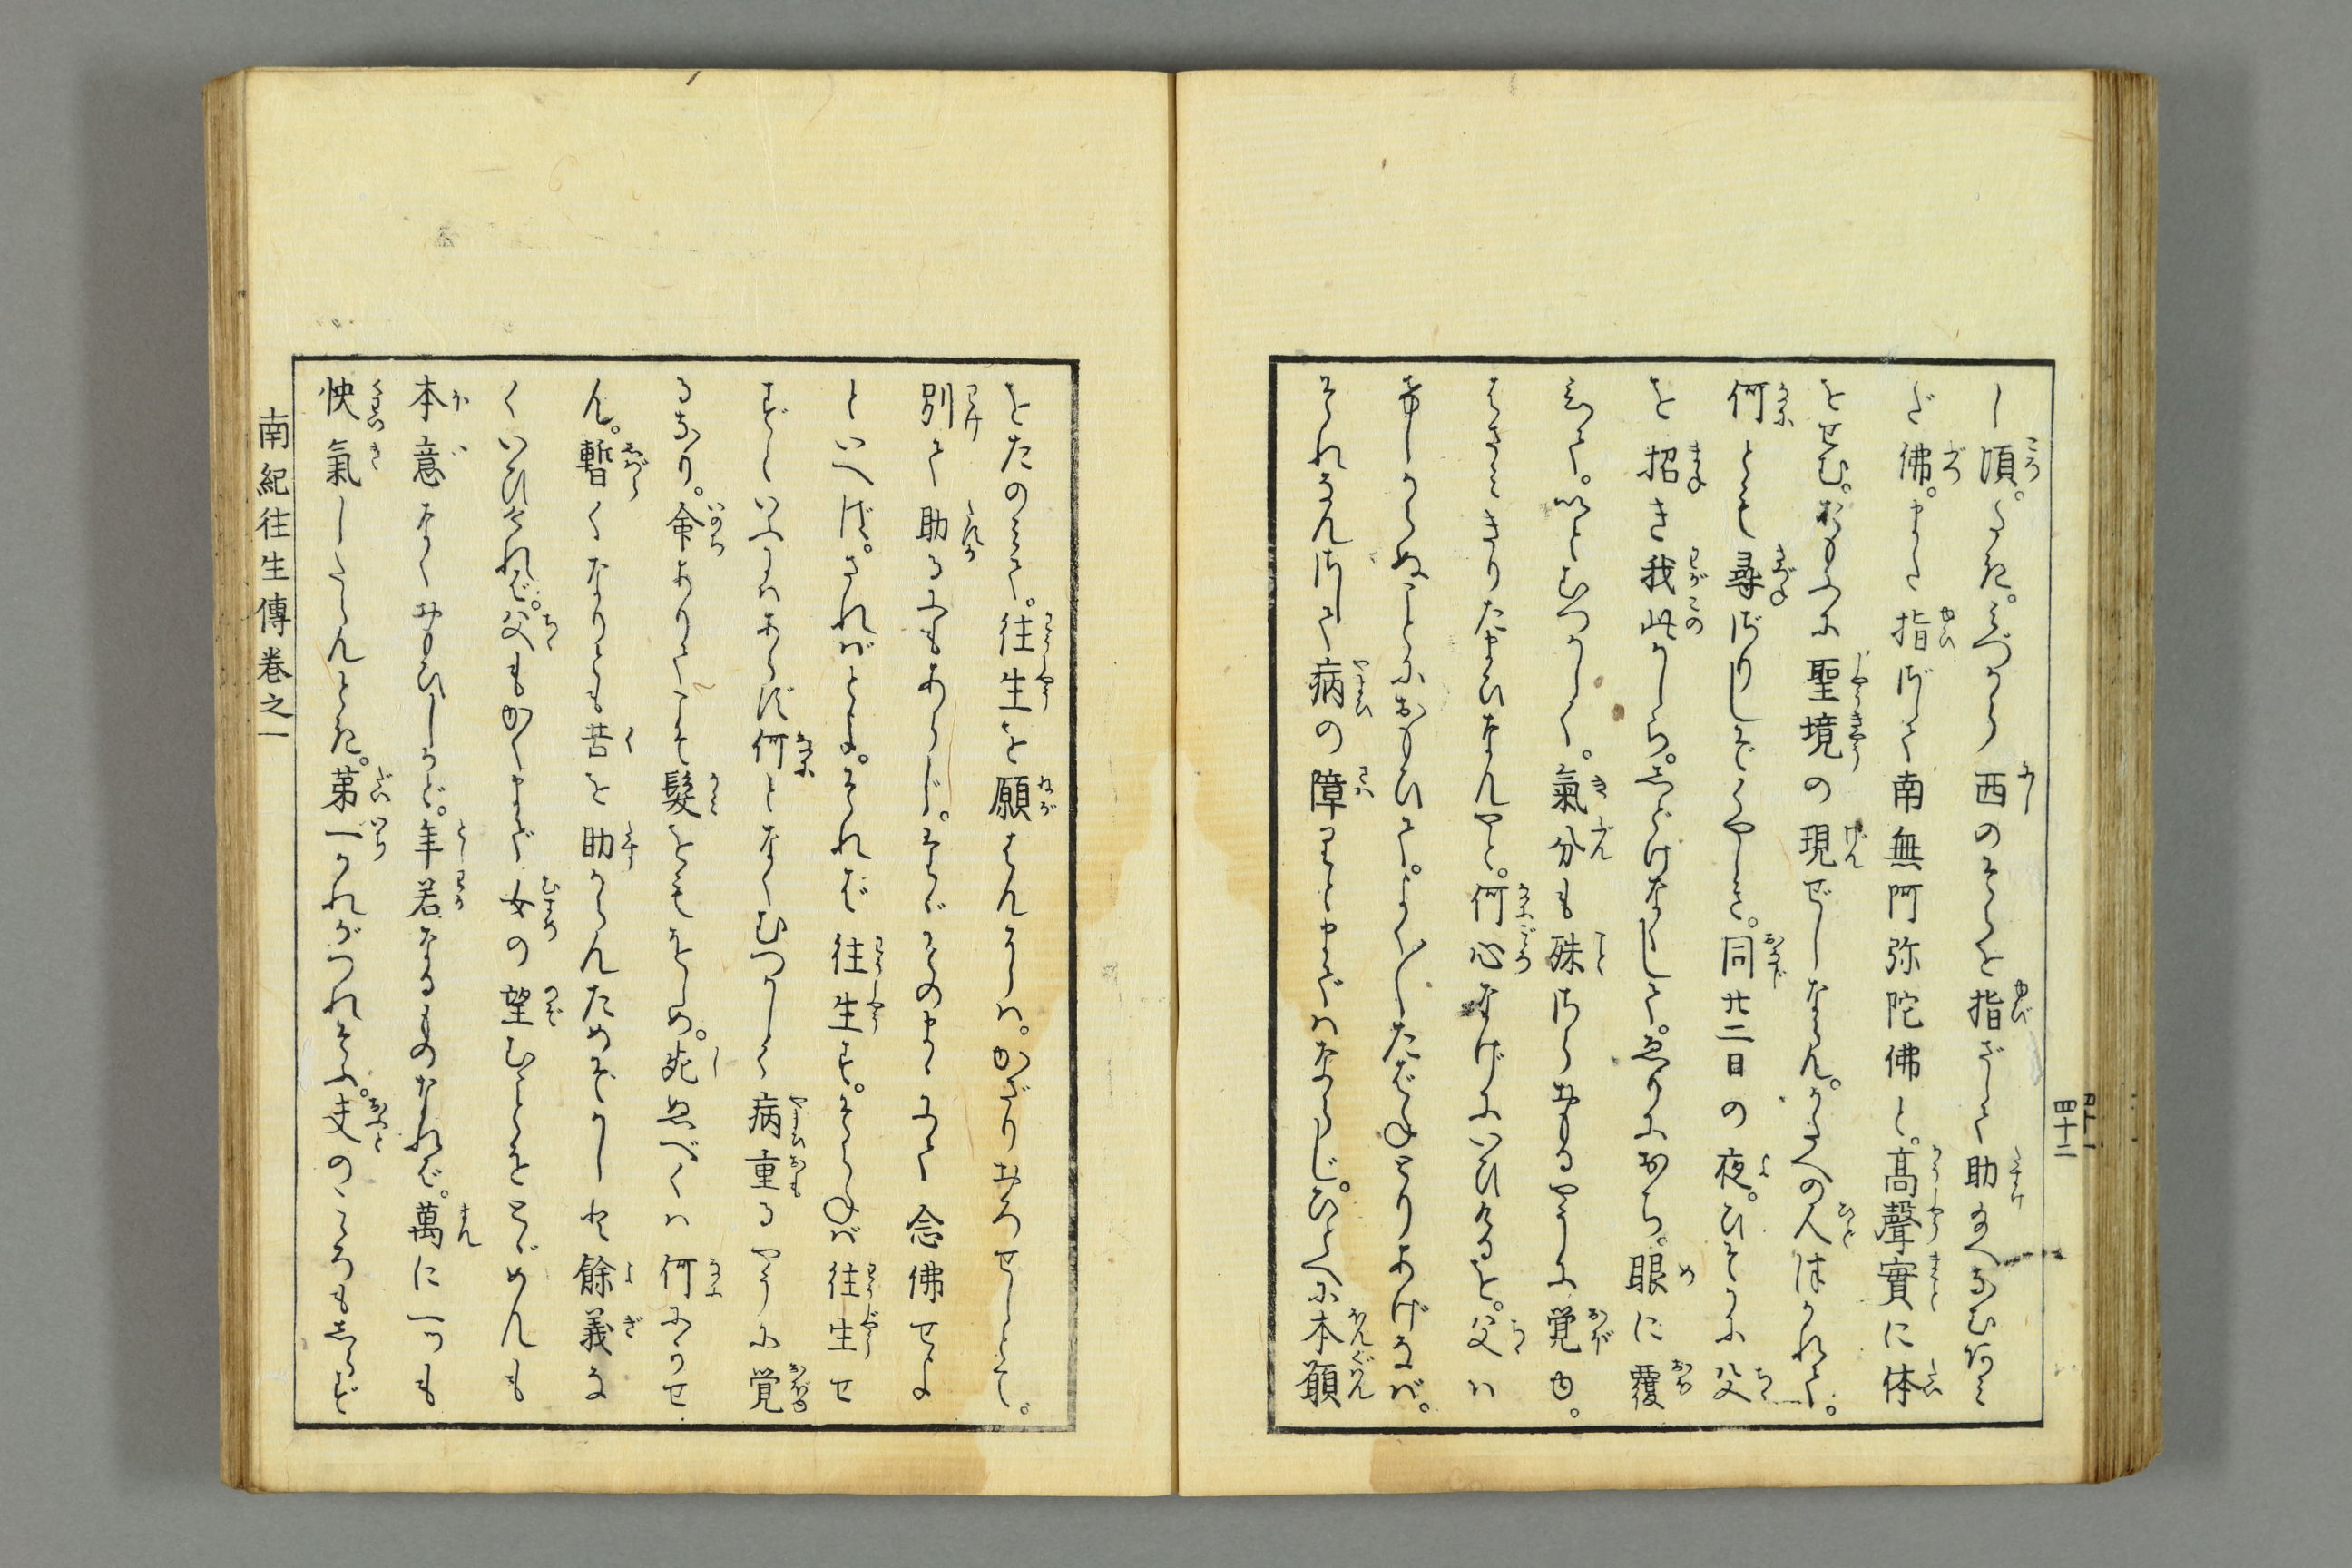 し頃。また。みづから西のそらを指ざして助給へなむあみ
だ佛。また指ざして南無阿弥陀佛と。高聲實に体
をせむ。おもふに聖境の現ぜしならん。かたへの人はかれて。
何とも尋ざりしぞくやしき。同廿二日の夜。ひそかに父
を招き我此かしら。しどけなくして。ゑりにおち。眼に覆
ひて。いとむつかしく。氣分も殊さらおもるやうに覚ゆ。
はさみきりたまひなんやと。何心なげにいひけるを。父は
あしからぬことにおもひて。よく〳〵たばねとりあげなば。
それなんさして病の障りとまではならじ。ひとへに本願
をたのみて。往生を願はんには。かざりおろせしとて。
別て助るにもあらじ。たゞそのまゝにて念佛せよ
といへば。さればとよ。それで往生す。そらねば往生せ
ずといふにはあらず何となくむつかしく病重るやうに覚
るなり。命ありてこそ髪をもをしめ。死ぬべくは何にかせ
ん。暫くなりとも苦を助からんためぞかしと餘義な
くいひければ。父もかくまで女の望むことをとゞめんも
本意なくおもひしかど。年若なるものなれば。萬に一つも
快氣したらんとき。第一かれがつれそふ。夫のこゝろもしらず
南紀往生傳巻之一
四十二